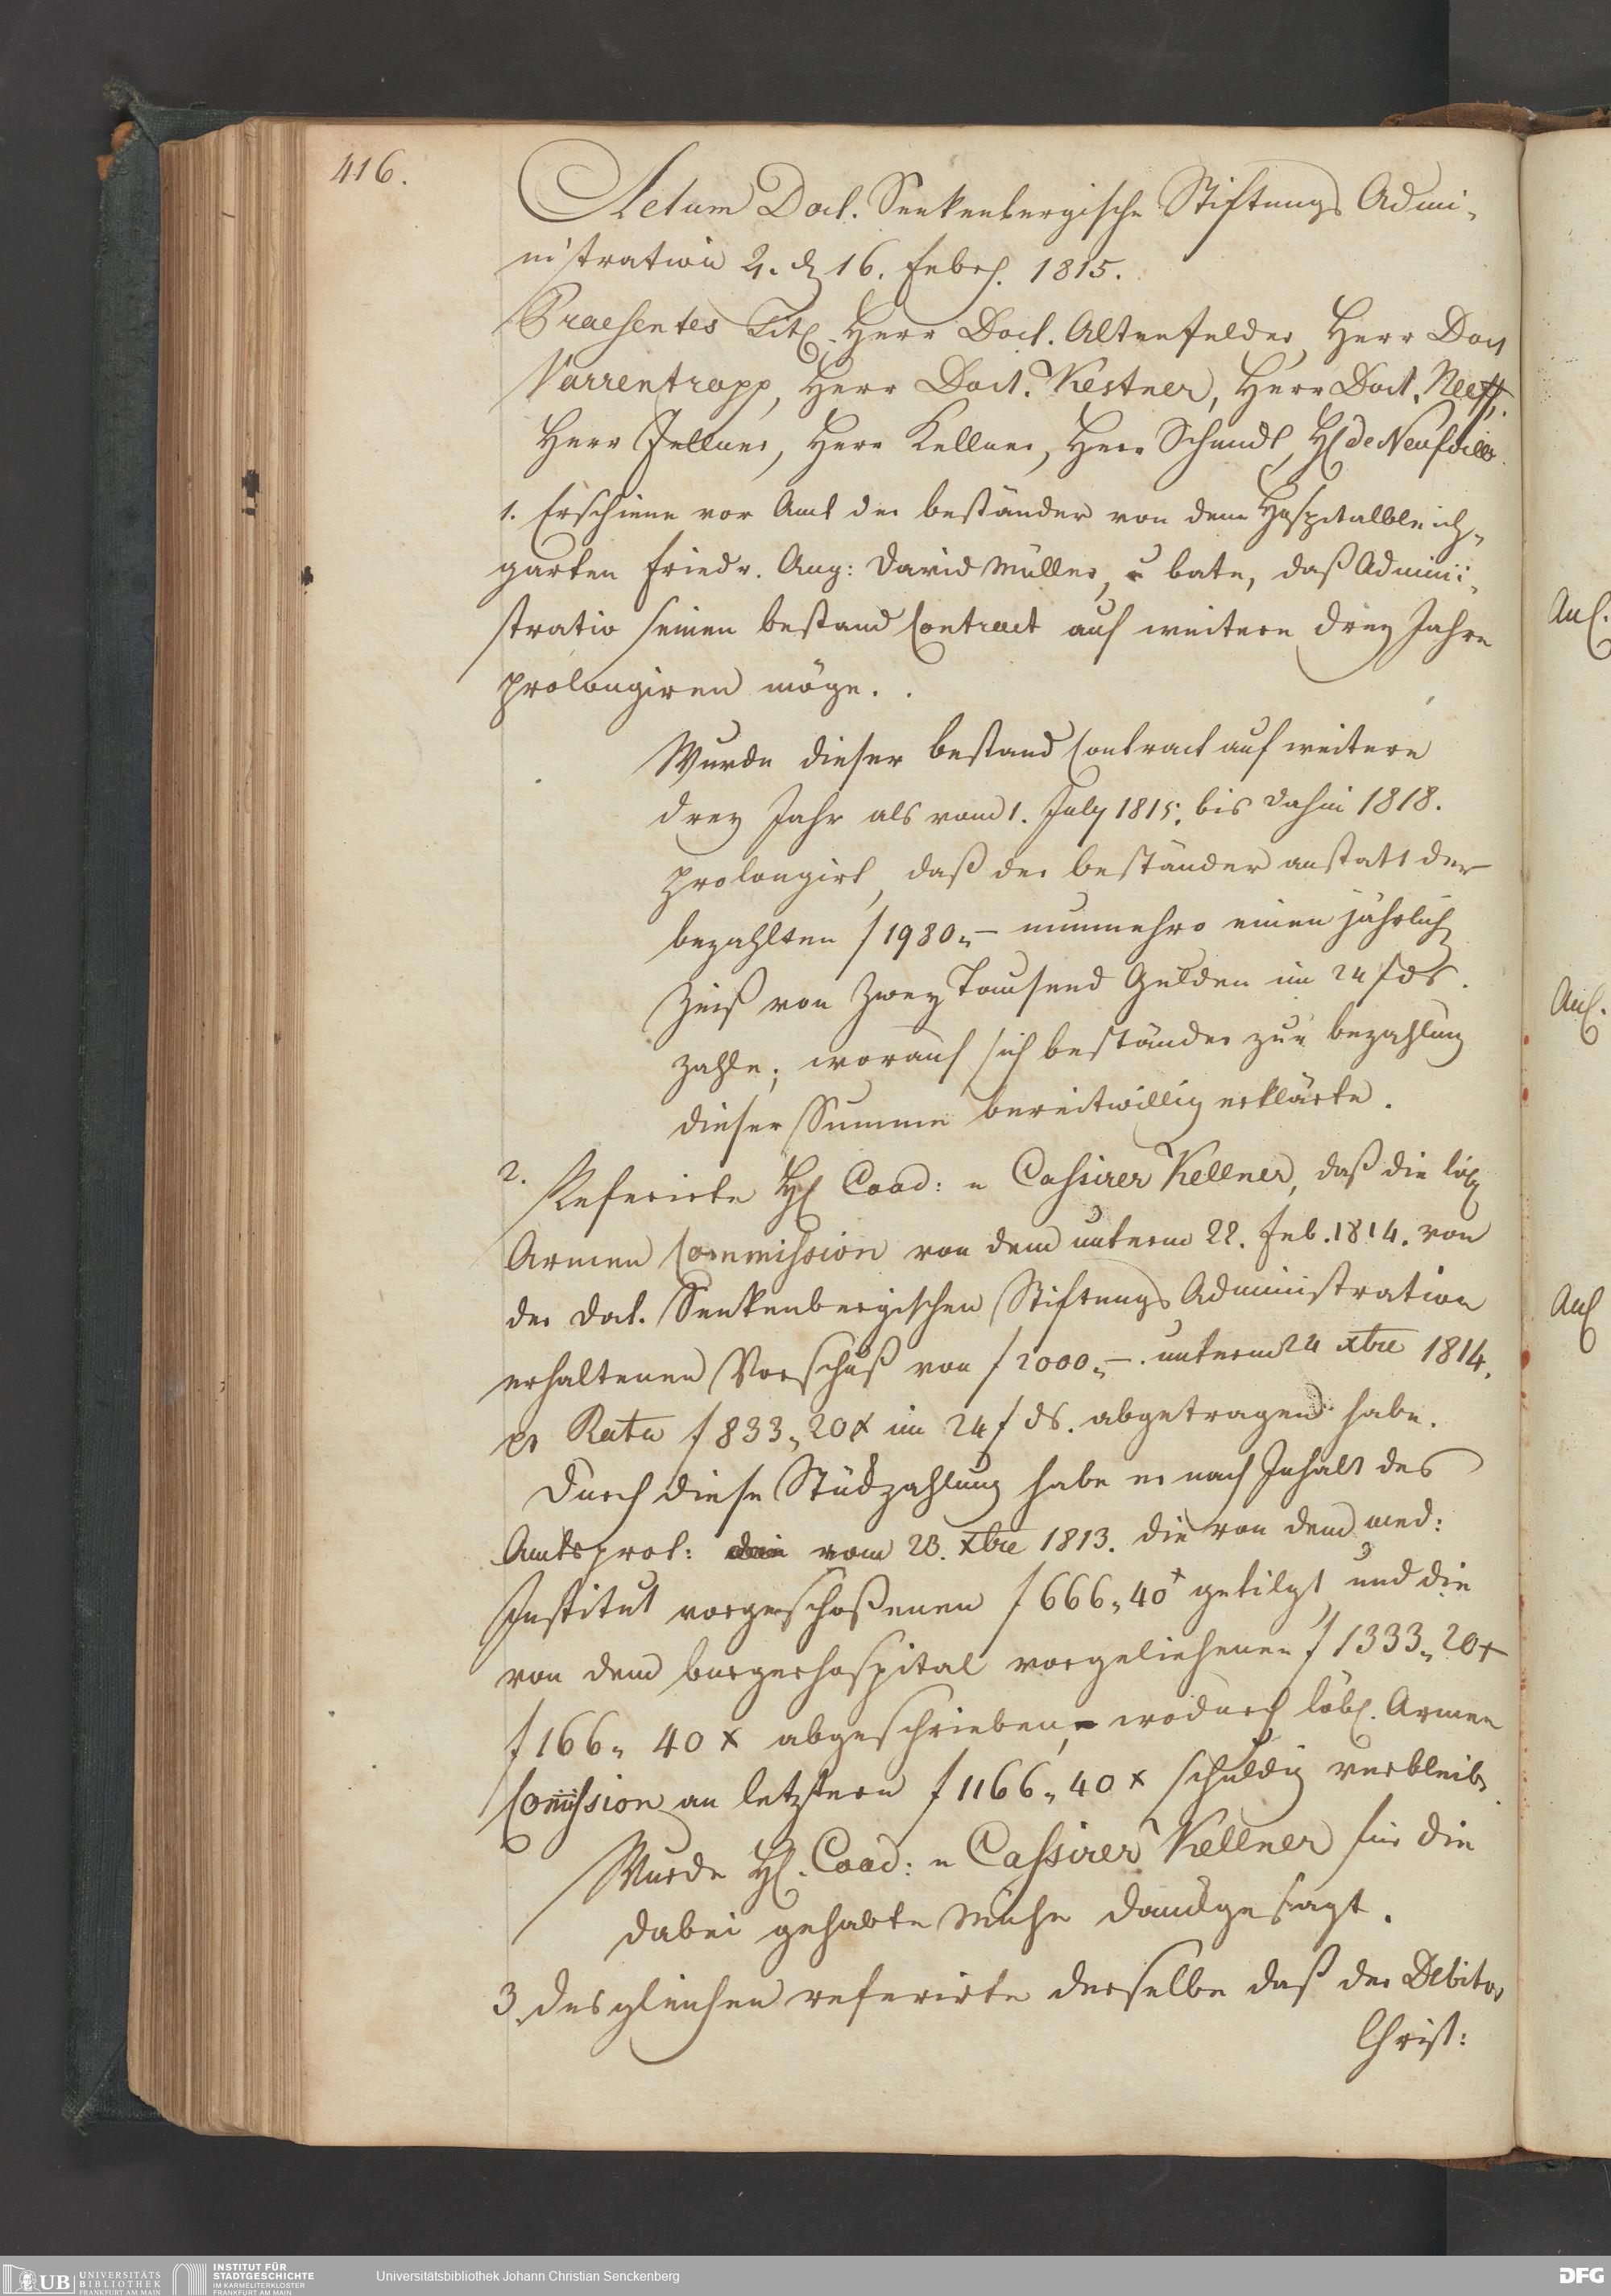 416.
Actum Doct. Senkenbergische Stiftungs Admi-
nistration 4. d 16. Febr. 1815.
Praesentes Tit. Herr Doct. Altenfelder, Herr Doct
Varrentrapp, Herr Doct. Kestner, Herr Doct. Neeff,
Herr Fellner, Herr Kellner, Herr Schmidt, H de Neufville.
1. Erschiene vor Amt der beständer von dem Hospitalbleich-
garten Friedr. Aug: David Müller, u bate, daß Admini-
stratio seinen bestand Contract auf weitere drey Jahre
prolongiren möge.
Wurde dieser bestand Contract auf weitere
drey Jahr als vom 1. July 1815. bis dahin 1818.
prolongirt, daß der beständer anstatt der
bezahlten f 1980.- nunmehro einen jährlich
Zinß von Zwey Tausend Gulden im 24 f ds.
zahle; worauf sich beständer zur bezahlung
dieser Summe bereitwillig erklärte.
2. Referirte H Coad: u Cassirer Kellner, daß die löb
Armen Commission von dem unterm 22. Feb. 1814. von
der Doct. Senkenbergischen Stiftungs Administration
erhaltenen Vorschuß von f 2000.-. unterm 24 xbre 1814.
pr Rata f 833„20x im 24 f ds. abgetragen habe.
Durch diese Stückzahlung habe er nach Inhalt des
Amtsprot: vom 23. Xbre 1813. die von dem med:
Institut vorgeschoßenen f 666„40x getilgt, und die
von dem burgerhospital vorgeliehenen f 1333„20x
f 166„ 40 x abgeschrieben, wodurch löbl. Armen
Commission an letztern f 1166„40 x schuldig verbleib.
Wurde H. Coad: u Cassirer Kellner für die
dabei gehabte Mühe dankgesagt.
3. Desgleichen referirte derselbe daß der Debitor
Christ:
Anl.
Anl.
Anl
UB UNIVERSITÄTS
BIBLIOTHEK
FRANKFURT AM MAIN
INSTITUT FÜR
STADTGESCHICHTE
IM KARMELITERKLOSTER
FRANKFURT AM MAIN
Universitätsbibliothek Johann Christian Senckenberg
DFG